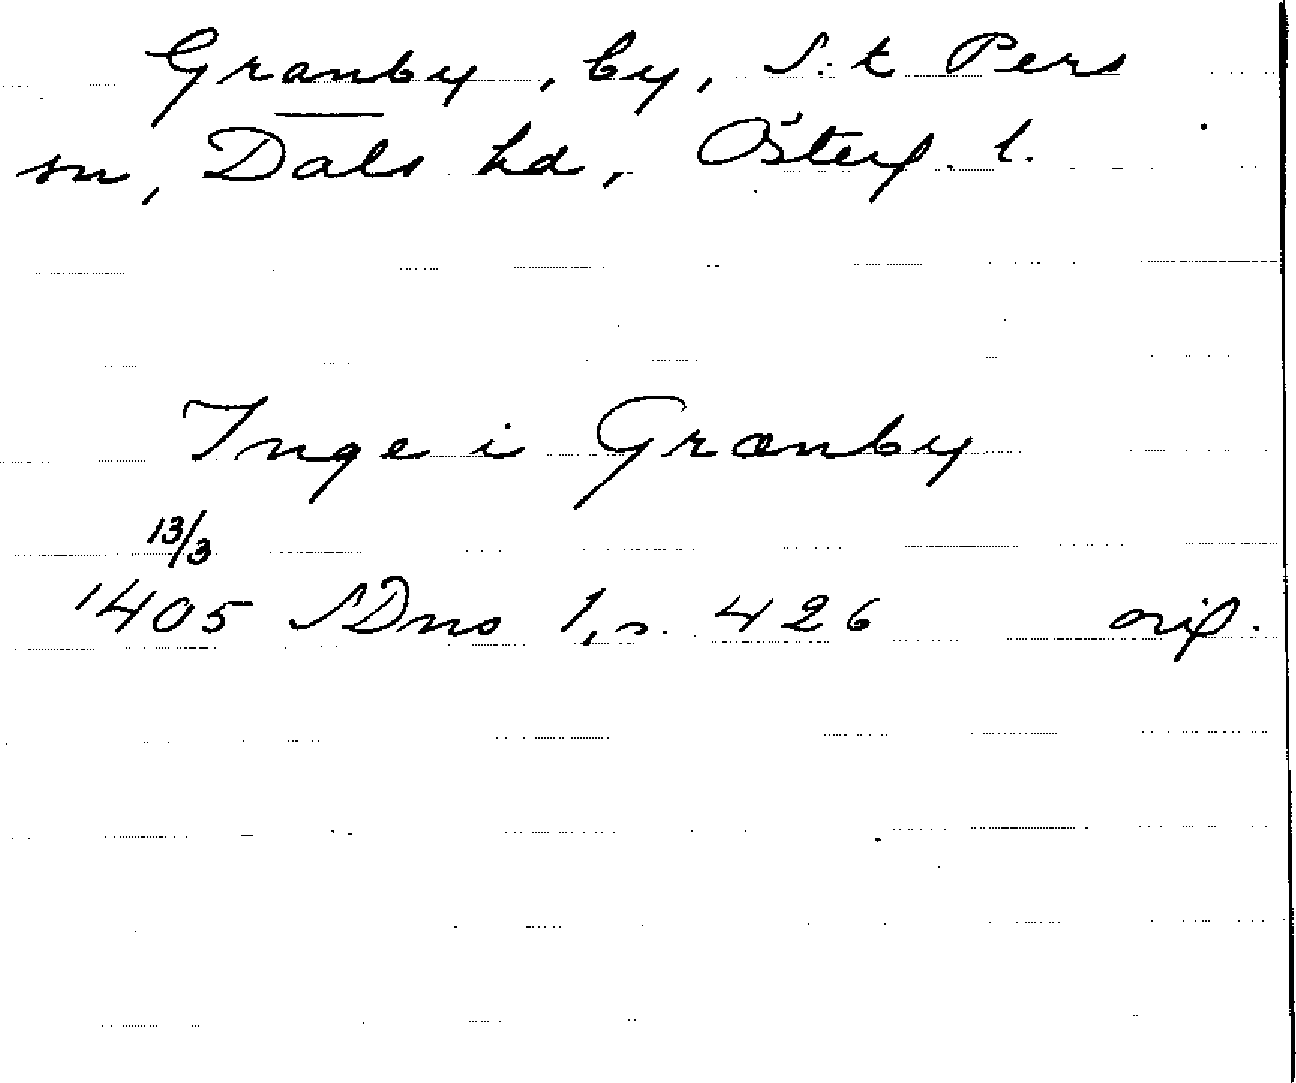 Granby, by, S:t Pers
sn, Dals hd, Österg. l.
Inge i Granby
13/3
1405 SDns 1, s. 426 orig.